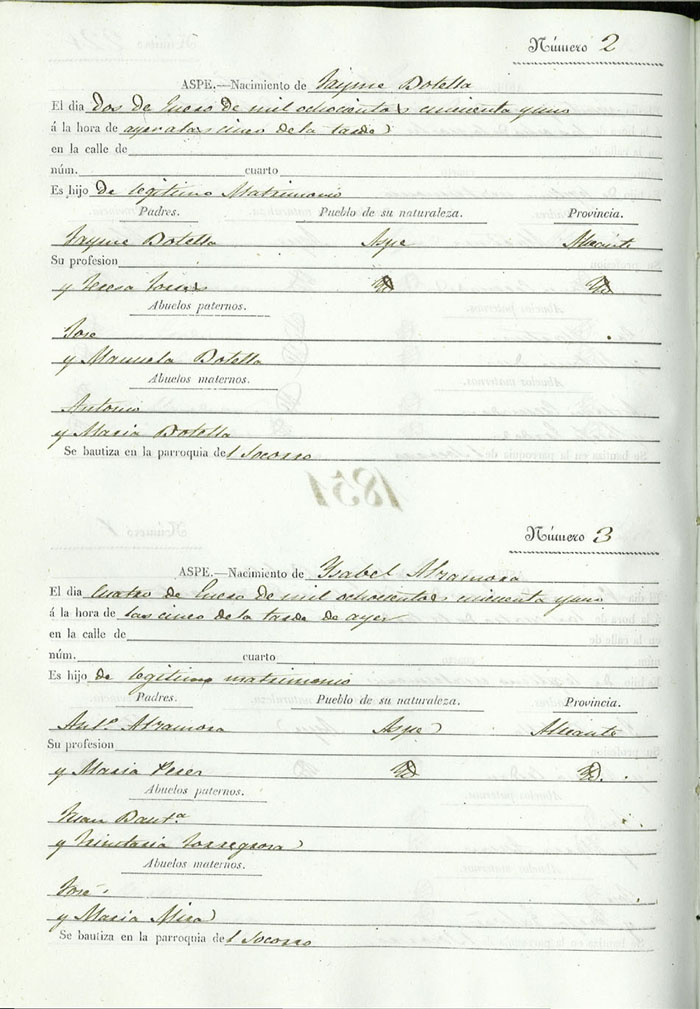 Número 2
ASPE.—Nacimiento de Jayme Botella
El dia dos de Enero de mil ochocientos cincuenta y uno
á la hora de ayer a las cinco de la tarde
en la calle de
núm. cuarto
Es hijo de legitimo Matrimonio
Padres. Pueblo de su naturaleza. Provincia.
Jayme Botella Aspe Alicante
Su profesion
y Teresa Torres Yd Yd
Abuelos paternos.
Jose
y Manuela Botella
Abuelos maternos.
Antonio
y Maria Botella
Se bautiza en la parroquia del Socorro
1851
Número 3
ASPE.—Nacimiento de Ysabel Alzamora
El dia cuatro de Enero de mil ochocientos cincuenta y uno
á la hora de las cinco de la tarde de ayer
en la calle de
núm. cuarto
Es hijo de legitimo matrimonio
Padres. Pueblo de su naturaleza. Provincia.
Antº Alzamora Aspe Alicante
Su profesion
y Maria Perez Yd Yd.
Abuelos paternos.
Juan Bautª
y Trinitaria Torregrosa
Abuelos maternos.
José
y Maria Mira
Se bautiza en la parroquia del Socorro